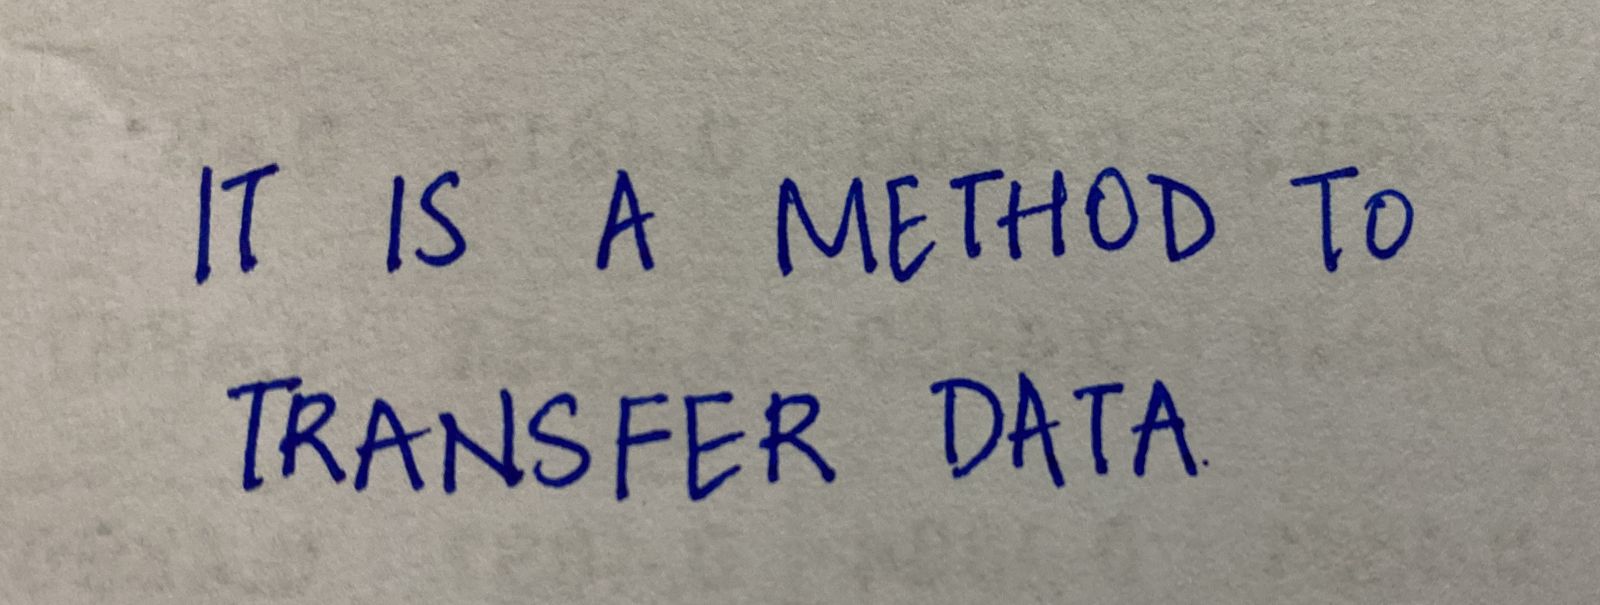 IT IS A METHOD TO
TRANSFER DATA.